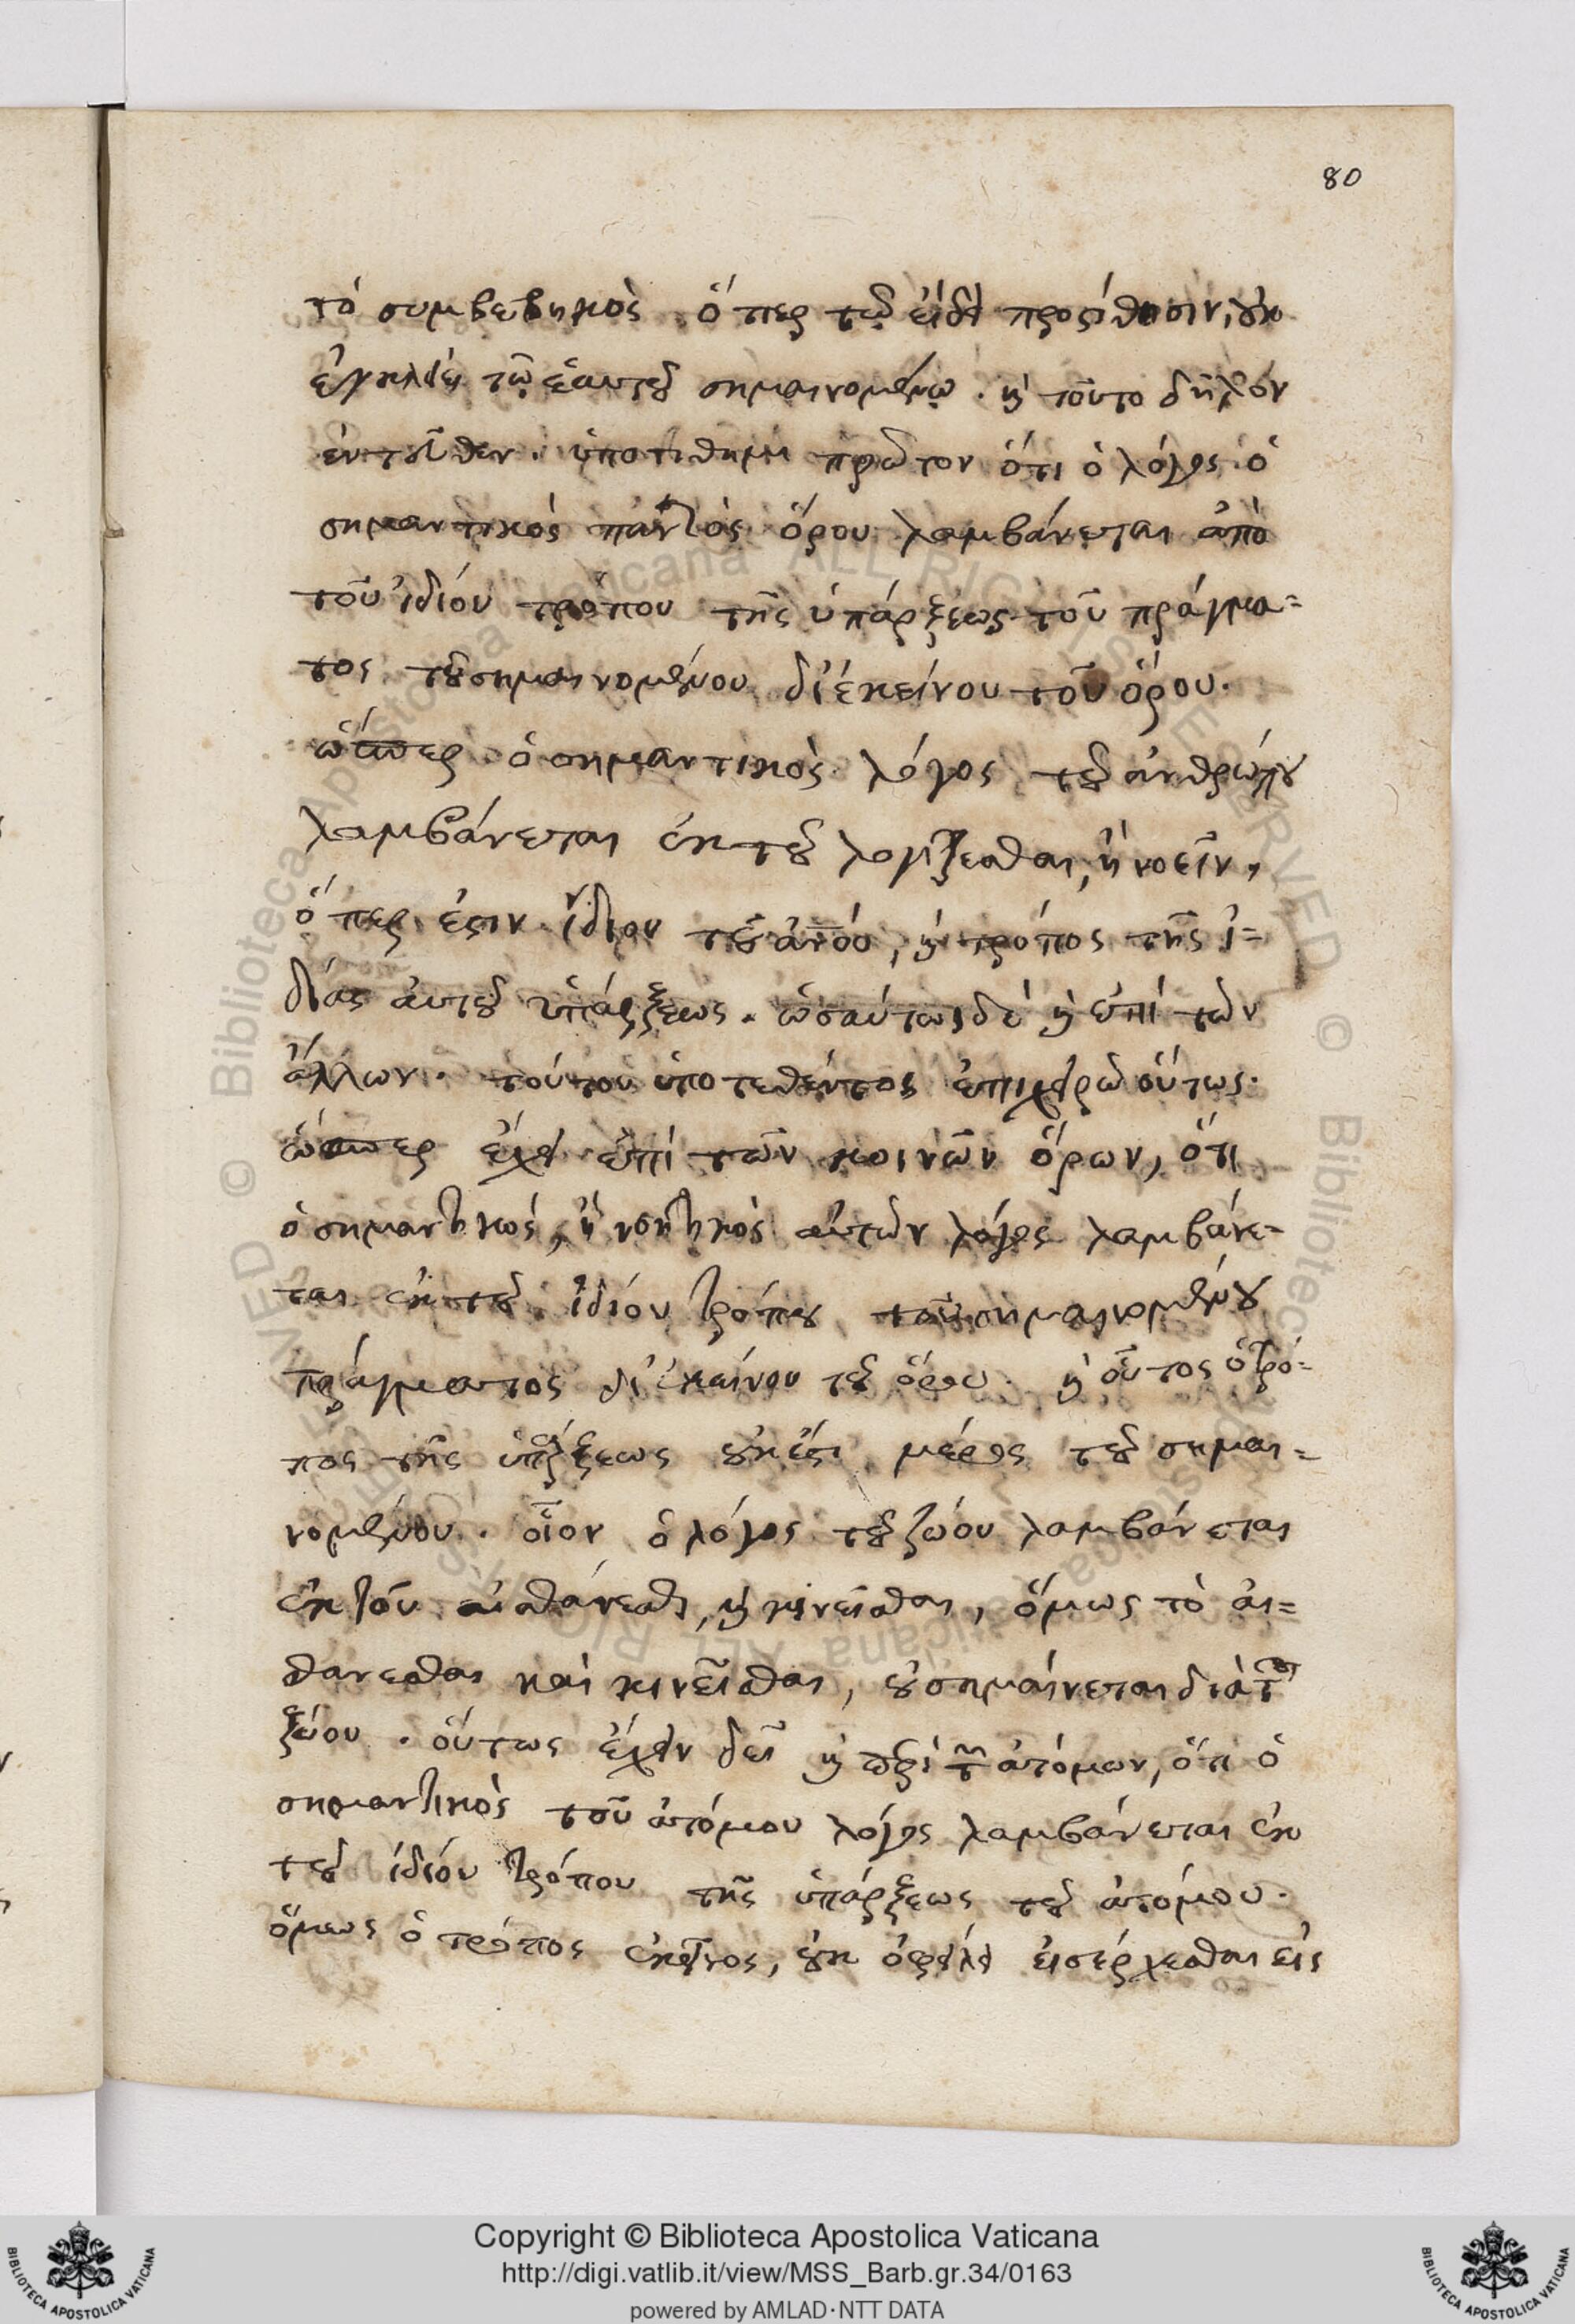 80
τὸ συμβεβηκὸς ὅπερ τῷ εἴδει προστίθησιν, οὐκ
ἐγκλείει τῷ ἑαυτοῦ σημαινομένῳ. καὶ τοῦτο δῆλον
ἐντεῦθεν. ὑποτίθημι πρῶτον ὅτι ὁ λόγος ὁ
σημαντικὸς παντὸς ὅρου λαμβάνεται ἀπὸ
τοῦ ἰδίου τρόπου τῆς ὑπάρξεως τοῦ πράγμα=
τος τοῦ σημαινομένου δι' ἐκείνου τοῦ ὅρου.
ὥσπερ ὁ σημαντικὸς λόγος τοῦ ἀνθρώπου
λαμβάνεται ἐκ τοῦ λογίζεσθαι, καὶ νοεῖν,
ὅπερ ἐστιν ἴδιον τοῦ ἀνου, καὶ τρόπος τῆς ἰ=
δίας αὐτοῦ ὑπάρξεως. ὡσαύτως δὲ καὶ ἐπὶ τῶν
ἄλλων. τούτου ὑποτεθέντος ἐπιχειρῶ οὕτως.
ὥσπερ ἔχει ἐπὶ τῶν κοινῶν ὅρων, ὅτι
ὁ σημαντικὸς, ἢ νοητικὸς αὐτῶν λόγος λαμβάνε=
ται ἐκ τοῦ ἰδίου τρόπου τοῦ σημαινομένου
πράγματος δι' ἐκείνου τοῦ ὅρου. καὶ οὗτος ὁ τρό=
πος τῆς ὑπάρξεως οὐκ ἔστι μέρος τοῦ σημαι=
νομένου. οἷον ὁ λόγος τοῦ ζώου λαμβάνεται
ἐκ τοῦ αἰσθάνεσθαι, καὶ κινεῖσθαι, ὅμως τὸ αἰ=
σθανεσθαι καὶ κινεῖσθαι, οὐ σημαίνεται διὰ τοῦ
ζώου. οὕτως ἔχειν δεῖ καὶ περὶ τῶν ἀτόμων, ὅτι ὁ
σημαντικὸς τοῦ ἀτόμου λόγος λαμβάνεται ἐκ
τοῦ ἰδίου τρόπου τῆς ὑπάρξεως τοῦ ἀτόμου.
ὅμως ὁ τρόπος ἐκεῖνος, οὐκ ὀφείλει εἰσέρχεσθαι εἰς
Copyright © Biblioteca Apostolica Vaticana
http://digi.vatlib.it/view/MSS_Barb.gr.34/0163
powered by AMLAD·NTT DATA